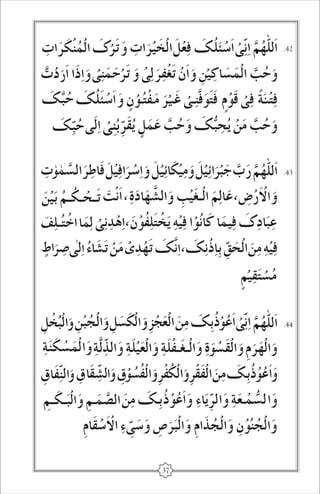 42. اَللّٰهُمَّ اِنِّىْ اَسْئَلُكَ فِعْلَ الْخَيْرَاتِ وَ تَرْكَ الْمُنْكَرَاتِ
وَ حُبَّ الْمَسَاكِيْنِ وَ اَنْ تَغْفِرَ لِىْ وَ تَرْحَمَنِىْ وَاِذَا اَرَدْتَّ
فِىْ قَوْمٍ فِتْنَةً فَتَوَفَّنِىْ غَيْرَ مَفْتُوْنٍ وَ اَسْئَلُكَ حُبَّكَ
وَ حُبَّ مَنْ يُحِبُّكَ وَ حُبَّ عَمَلٍ يُقَرِّبُنِىْ اِلٰى حُبِّكَ
43. اَللّٰهُمَّ رَبَّ جَبْرَائِيْلَ وَمِيْكَائِيْلَ وَاِسْرَافِيْلَ فَاطِرَ السَّمٰوٰتِ
وَالْاَرْضِ، عَالِمَ الْغَيْبِ وَالشَّهَادَةِ، اَنْتَ تَحْكُمُ بَيْنَ
عِبَادِكَ فِيمَا كَانُوْا فِيْهِ يَخْتَلِفُوْنَ، اِهْدِنِىْ لِمَا اخْتُلِفَ
فِيْهِ مِنَ الْحَقِّ بِاِذْنِكَ، اِنَّكَ تَهْدِىْ مَنْ تَشَاءُ اِلٰى صِرَاطٍ
مُسْتَقِيْمٍ
44. اَللّٰهُمَّ اِنِّىْ اَعُوْذُ بِكَ مِنَ الْعَجْزِ وَالْكَسَلِ وَالْجُبْنِ وَالْبُخْلِ
وَالْهَرَمِ وَالْقَسْوَةِ وَالْغَفْلَةِ وَالْعَيْلَةِ وَالذِّلَّةِ وَالْمَسْكَنَةِ
وَاَعُوْذُ بِكَ مِنَ الْفَقْرِ وَالْكُفْرِ وَالْفُسُوْقِ وَالشِّقَاقِ وَالنِّفَاقِ
وَالسُّمْعَةِ وَالرِّيَاءِ وَ اَعُوْذُ بِكَ مِنَ الصَّمَمِ وَالْبَكَمِ
وَالْجُنُوْنِ وَ الْجُذَامِ وَالْبَرَصِ وَ سَيِّءِ الْاَسْقَامِ
37